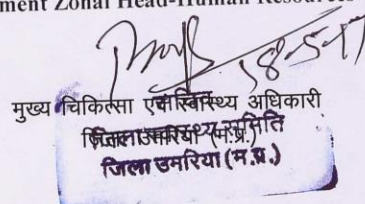 ment Zonal Head-Human Resources
18-5-17
मुख्य चिकित्सा एवं स्वास्थ्य अधिकारी
जिला उमरिया (म.प्र.)
जिला स्वास्थ्य समिति
जिला उमरिया (म.प्र.)